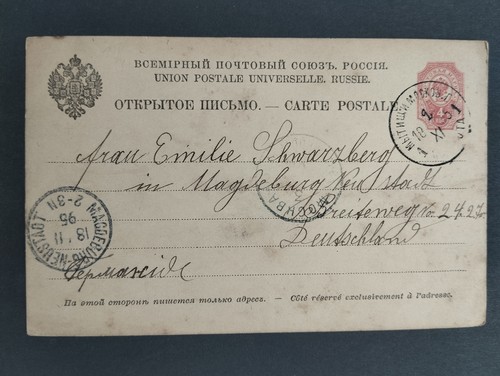 ВСЕМІРНЫЙ ПОЧТОВЫЙ СОЮЗЪ. РОССІЯ.
UNION POSTALE UNIVERSELLE. RUSSIE.
ОТКРЫТОЕ ПИСЬМО. — CARTE POSTALE.
4
МЫТИЩИ МОСКОВ.
2
XI
Frau Emilie Schwarzberg
in Magdeburg Neustadt
МОСКВА
Breiteweg No 24.27
Deutschland
MAGDEBURG-NEUSTADT
18 11
95
2-3N
Германія
На этой сторонѣ пишется только адресъ. — Côté réservé exclusivement à l'adresse.